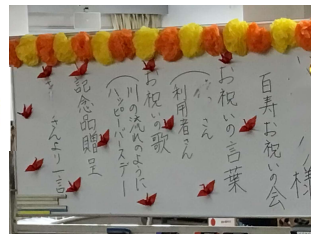 様
百寿お祝いの会
お祝いの言葉
さん
(利用者さん
お祝いの歌
(川の流れのように
ハッピーバースデー
記念品贈呈
さんより一言